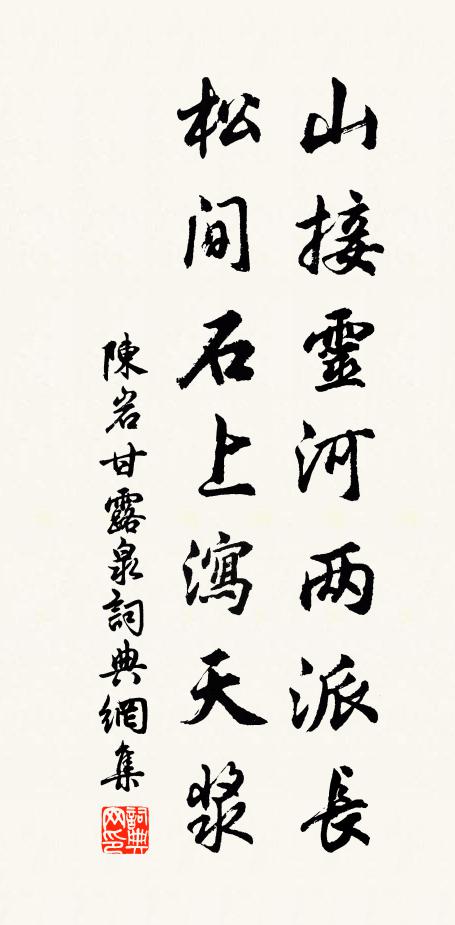 山接靈河两派長
松间石上瀉天漿
陳岩甘露泉詞典網集
詞典网印